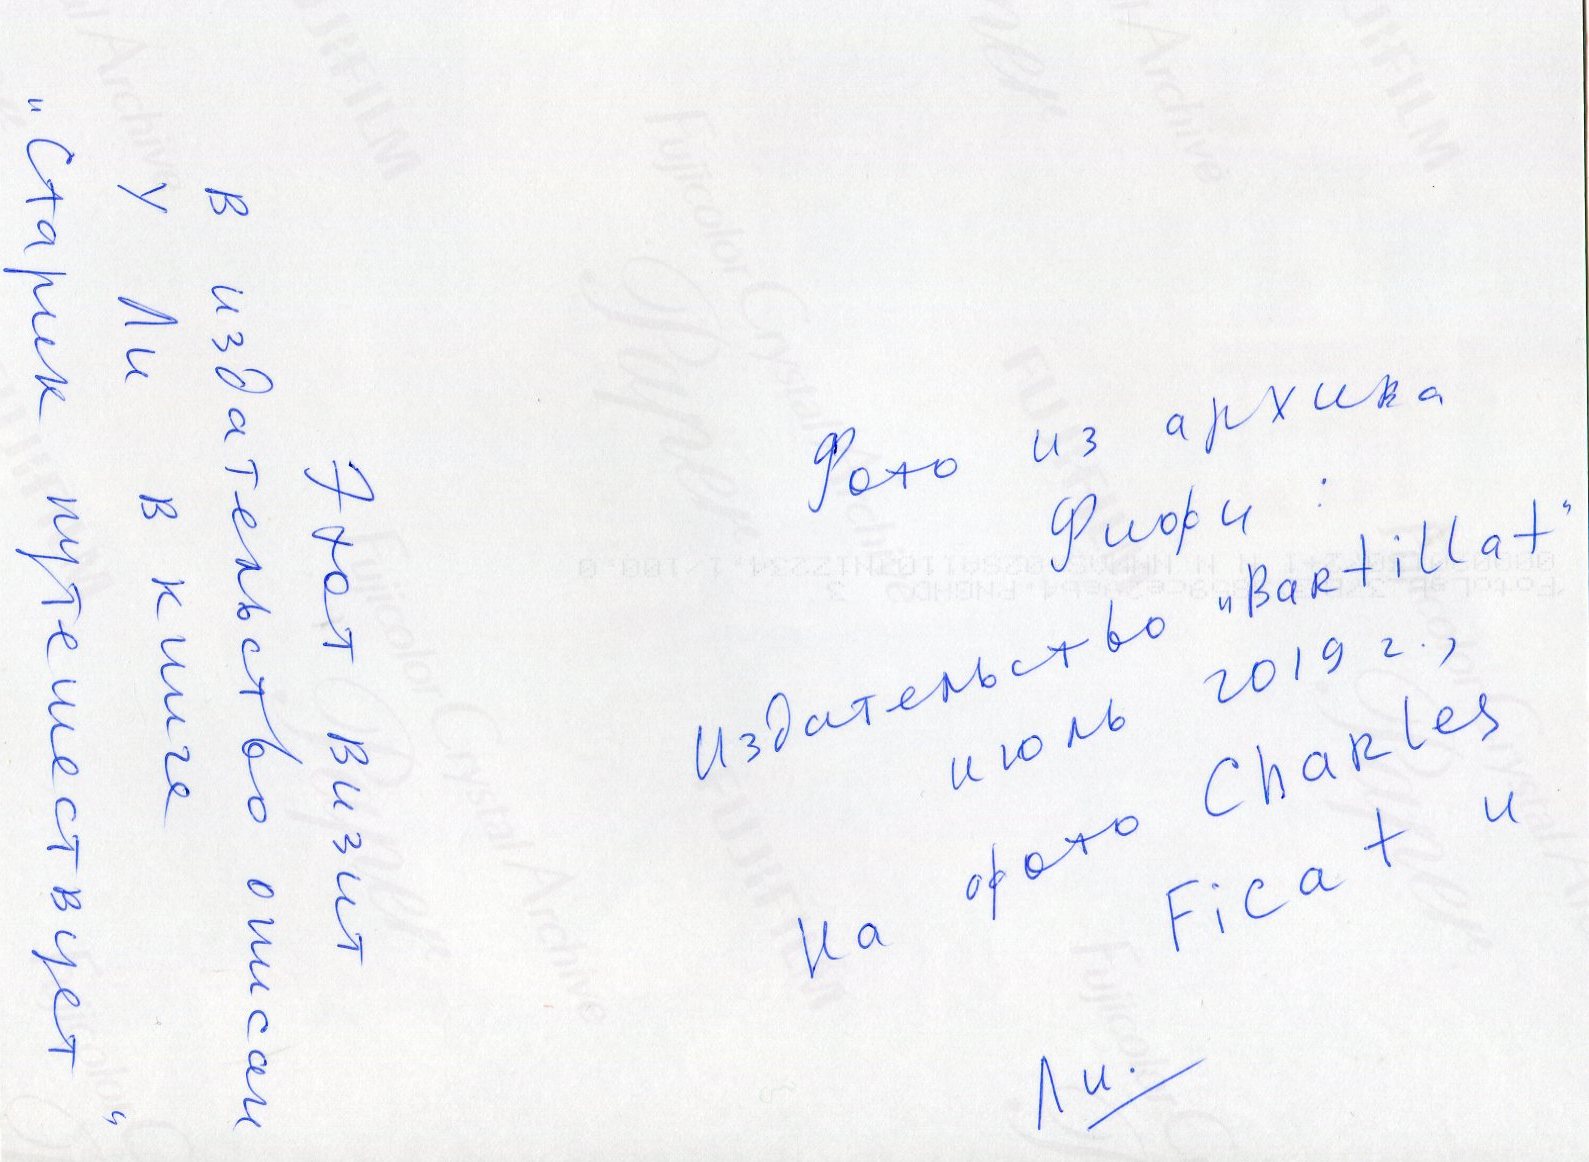 Фото из архива
Фифи:
Издательство „Bartillat“
июль 2019 г.,
на фото Charles
Ficat и
Ли.
Этот визит
в издательство описан
у Ли в книге
„Старик путешествует“
FUJIFILM
Fujicolor Crystal Archive
Paper